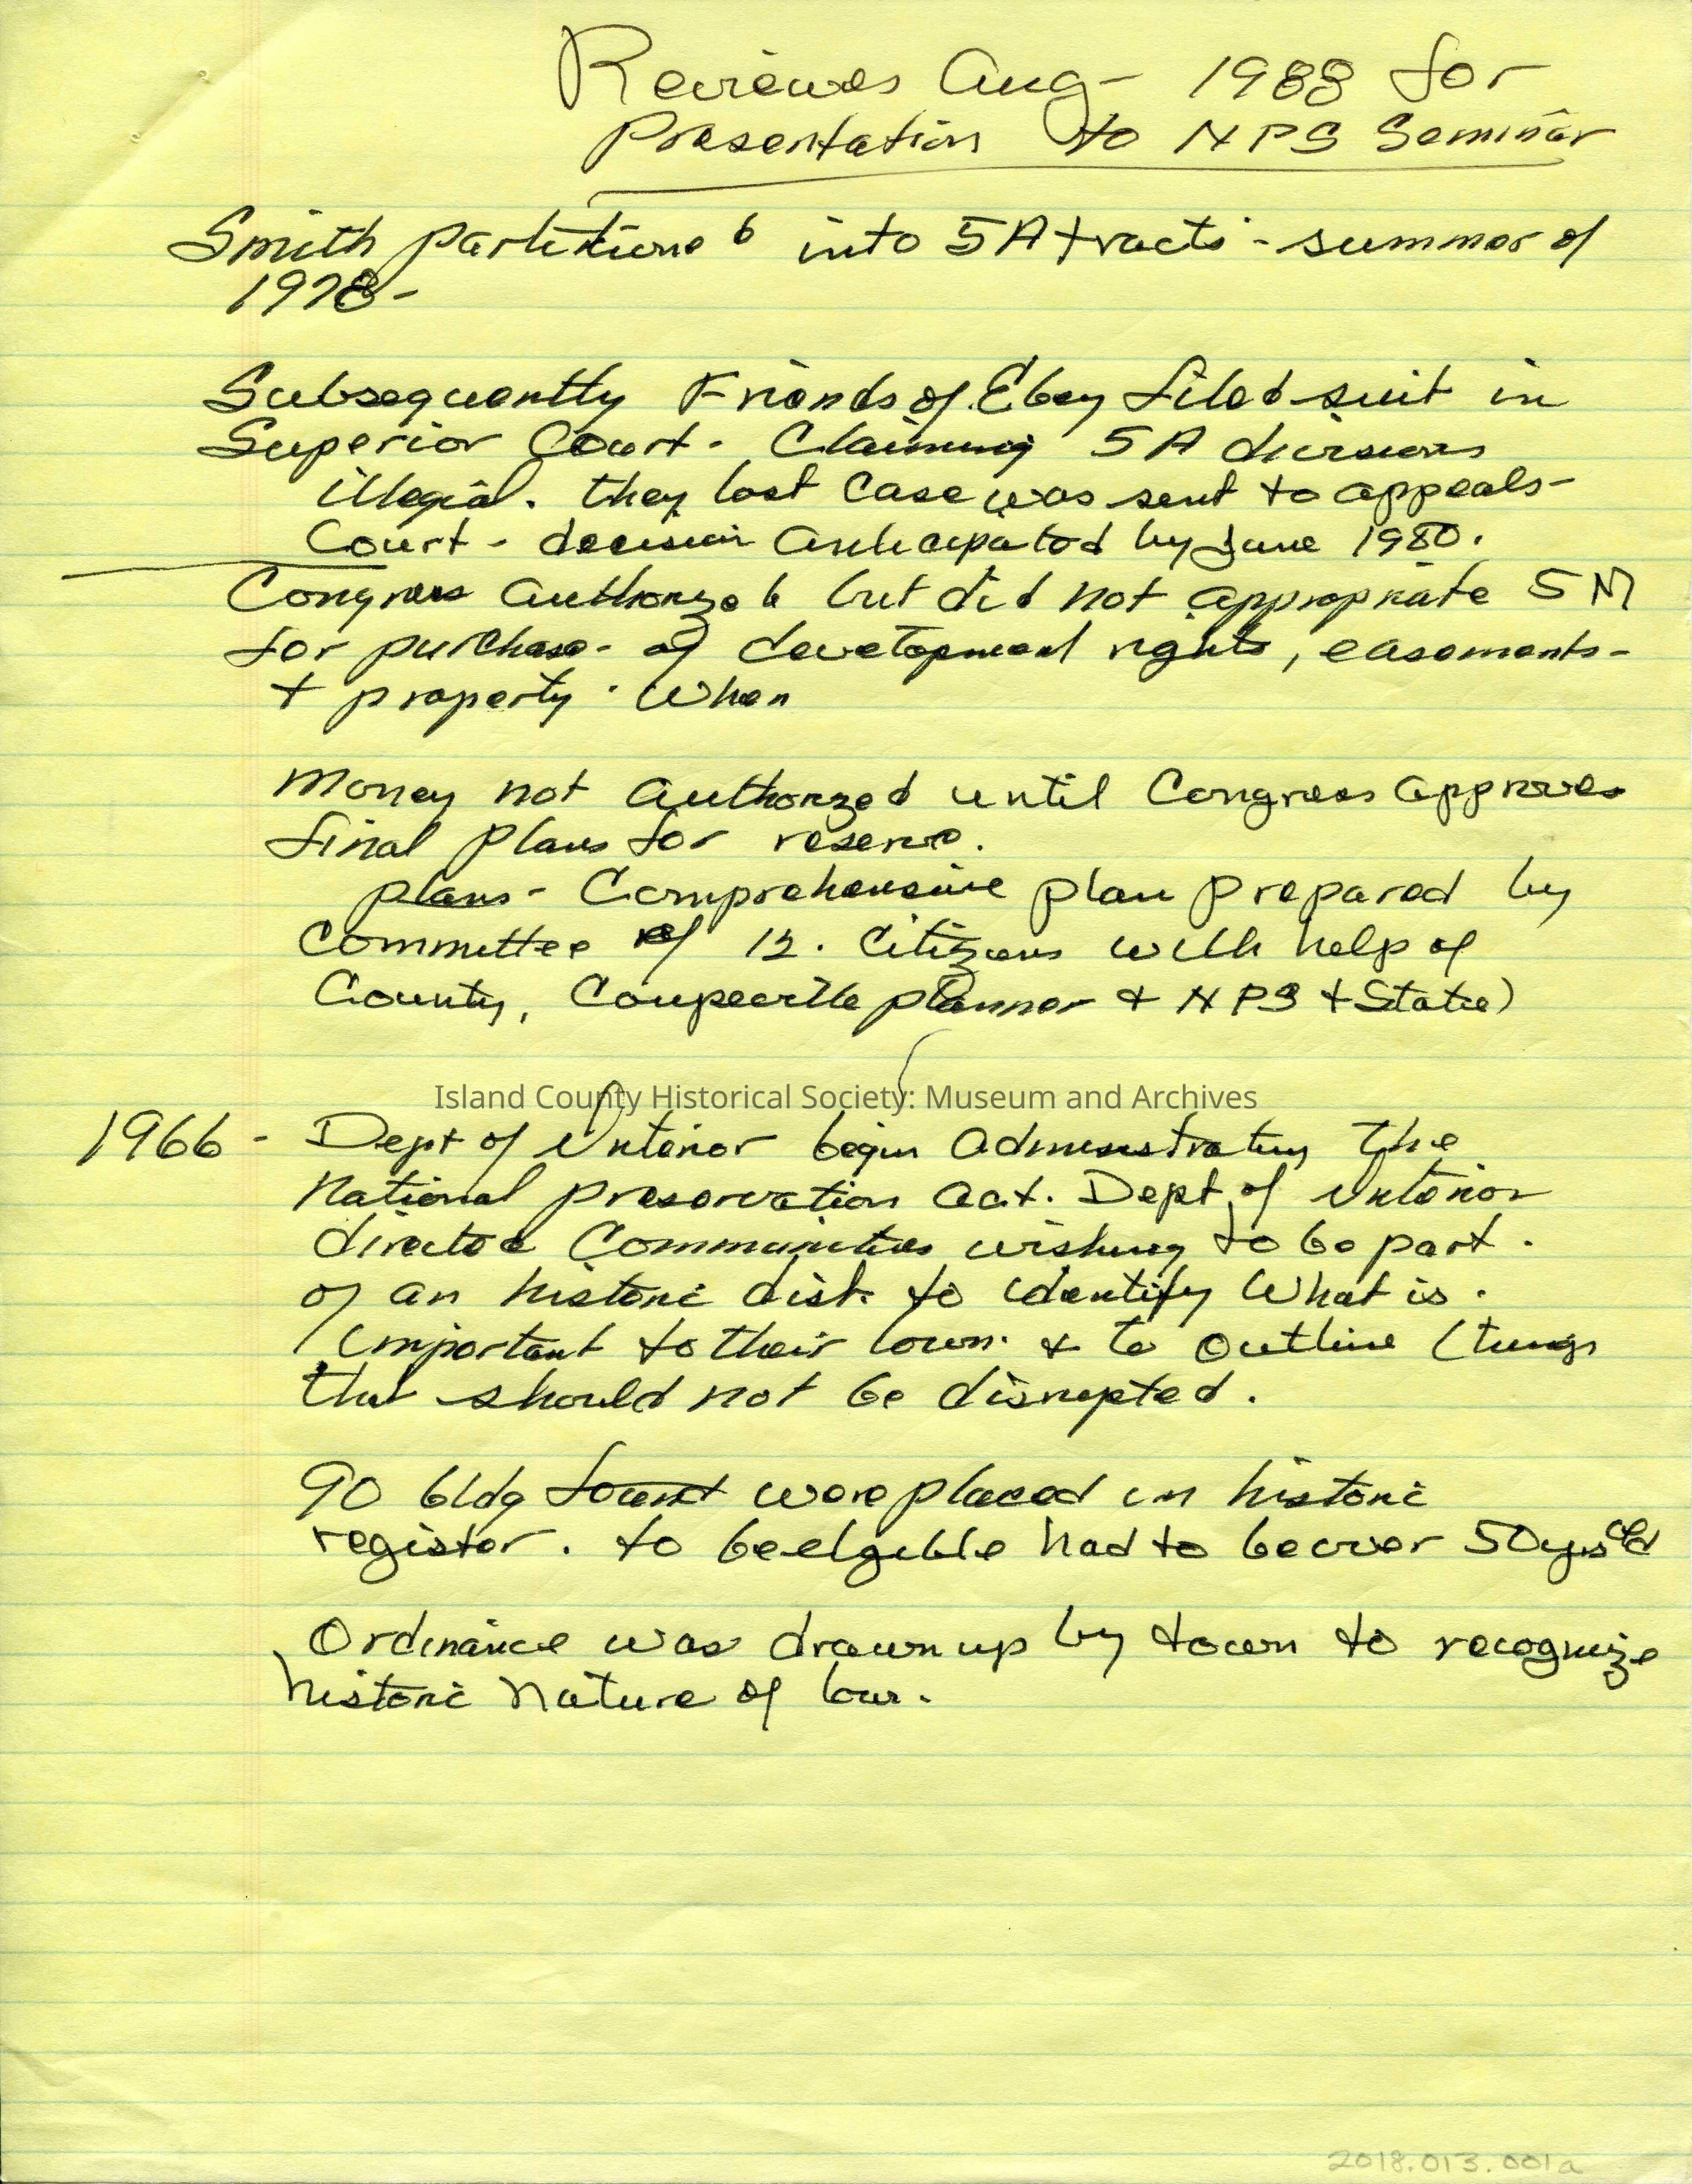 Reviewed Aug- 1988 for
Presentation to NPS Seminar
Smith partitioned into 5A tracts - summer of
1978-
Subsequently Friends of Ebey filed suit in
Superior Court - Claiming 5A divisions
illegal. they lost case was sent to appeals-
Court - decision anticipated by June 1980.
Congress authorized but did not appropriate 5M
for purchase - of development rights, easements-
+ property. When
Money not authorized until Congress approves
final plans for reserve.
plans - Comprehensive plan prepared by
Committee of 12. Citizens with help of
County, Coupeville planner + NPS + State)
Island County Historical Society: Museum and Archives
1966 - Dept of Interior begin administrating the
National preservation act. Dept. of Interior
directed Communities wishing to be part.
of an historic dist. to identify What is.
important to their town. + to outline (things
that should not be disrupted.
90 bldg found were placed in historic
register. to be elgible had to be over 50 yrs old
Ordinance was drawn up by town to recognize
historic nature of town.
2018.013.001a